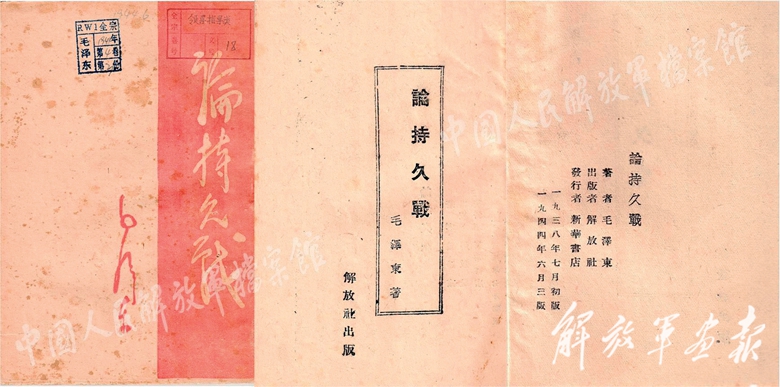 RW1全宗
毛泽东
18
論持久戰
毛澤東
論持久戰
毛澤東著
解放社出版
論持久戰
著者 毛澤東
出版者 解放社
發行者 新華書店
一九三八年七月初版
一九四四年六月三版
中國人民解放軍檔案館
中國人民解放軍檔案館
解放軍画报